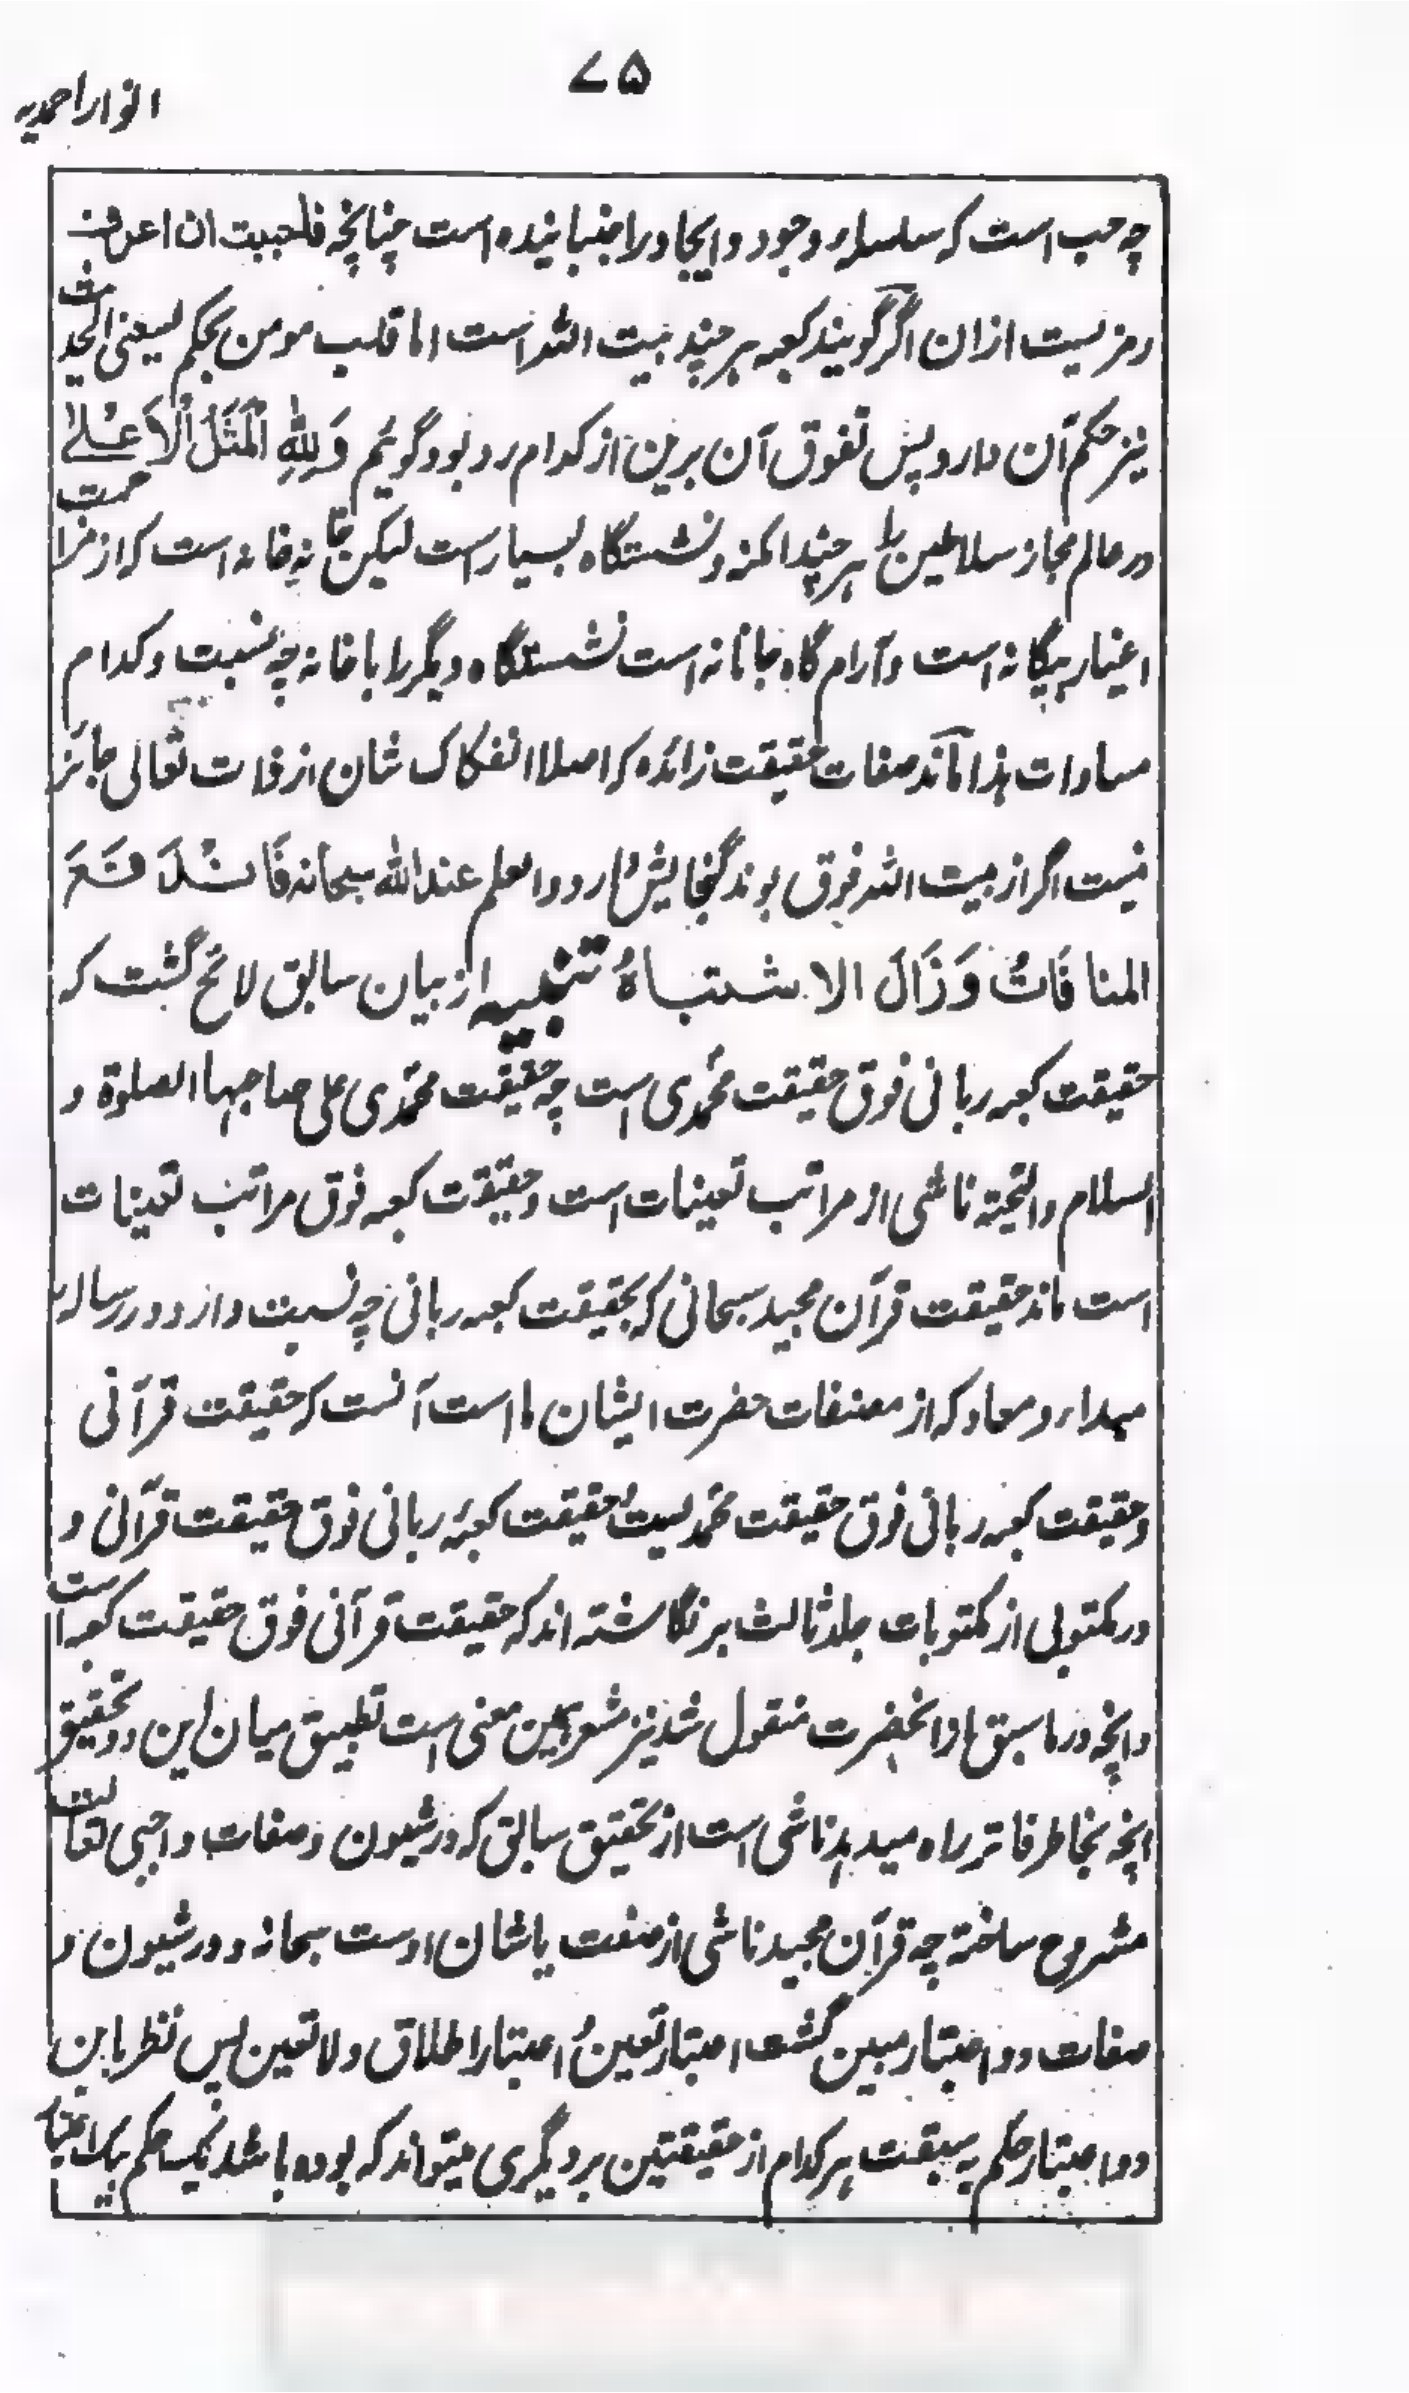 ۷۵
انوار احمدیه
چه حب است که سلسلهٔ وجود و ایجاد را جنبانیده است چنانچه فاحببت ان اعرف
رمزیست ازان اگر گویند کعبه هر چند بیت الله است اما قلب مومن بحکم لیعنی الحدیث
نیز حکم آن دارد پس تفوق آن برین از کدام رد بود گوئیم وَلِلّٰهِ الْمَثَلُ الْاَعْلٰے
در عالم مجاز سلاطین را هر چند امکنه و نشستگاه بسیار است لیکن خانه خانه است که از مزاحمت
اغیار بیگانه است و آرام گاه جانانه است نشستگاه دیگر را با خانه چه نسبت و کدام
مساوات هذا مانند صفات حقیقت زائده که اصلا انفکاک شان از ذات تعالی جائز
نیست اگر از بیت الله فوق بوند گنجایش دارد والعلم عندالله سبحانه فَانْدَفَعَ
المنافَاتُ وَزَالَ الاشتباهُ تنبیه از بیان سابق لائح گشت که
حقیقت کعبه ربانی فوق حقیقت محمّدی است چه حقیقت محمّدی علی صاحبها الصلوة و
السلام والتحیته ناشی از مراتب تعینات است و حقیقت کعبه فوق مراتب تعینات
است ماند حقیقت قرآن مجید سبحانی که بحقیقت کعبه ربانی چه نسبت دارد و در رساله
مبداء و معاد که از مصنفات حضرت ایشان ما است آنست که حقیقت قرآنی
و حقیقت کعبه ربانی فوق حقیقت محمّدیست و حقیقت کعبهٔ ربانی فوق حقیقت قرآنی و
در مکتوبی از مکتوبات جلد ثالث بر نگاشته اند که حقیقت قرآنی فوق حقیقت کعبه است
و انچه در ما سبق از انحضرت منقول شد نیز مشعر بهمین معنی است تطبیق میان این دو تحقیق
انچه بخاطر فاتر راه میدهد ناشی است از تحقیق سابق که در شیون و صفات واجبی تعالت
مشروح ساخته چه قرآن مجید ناشی از صفت یا شان اوست سبحانه و در شیون و
صفات دو اعتبار مبین گشت اعتبار تعین و اعتبار اطلاق و لا تعین پس نظر باین
دو اعتبار حکم به سبقت هر کدام از حقیقتین بر دیگری میتواند که بوده باشد یک حکم بیک اعتبار